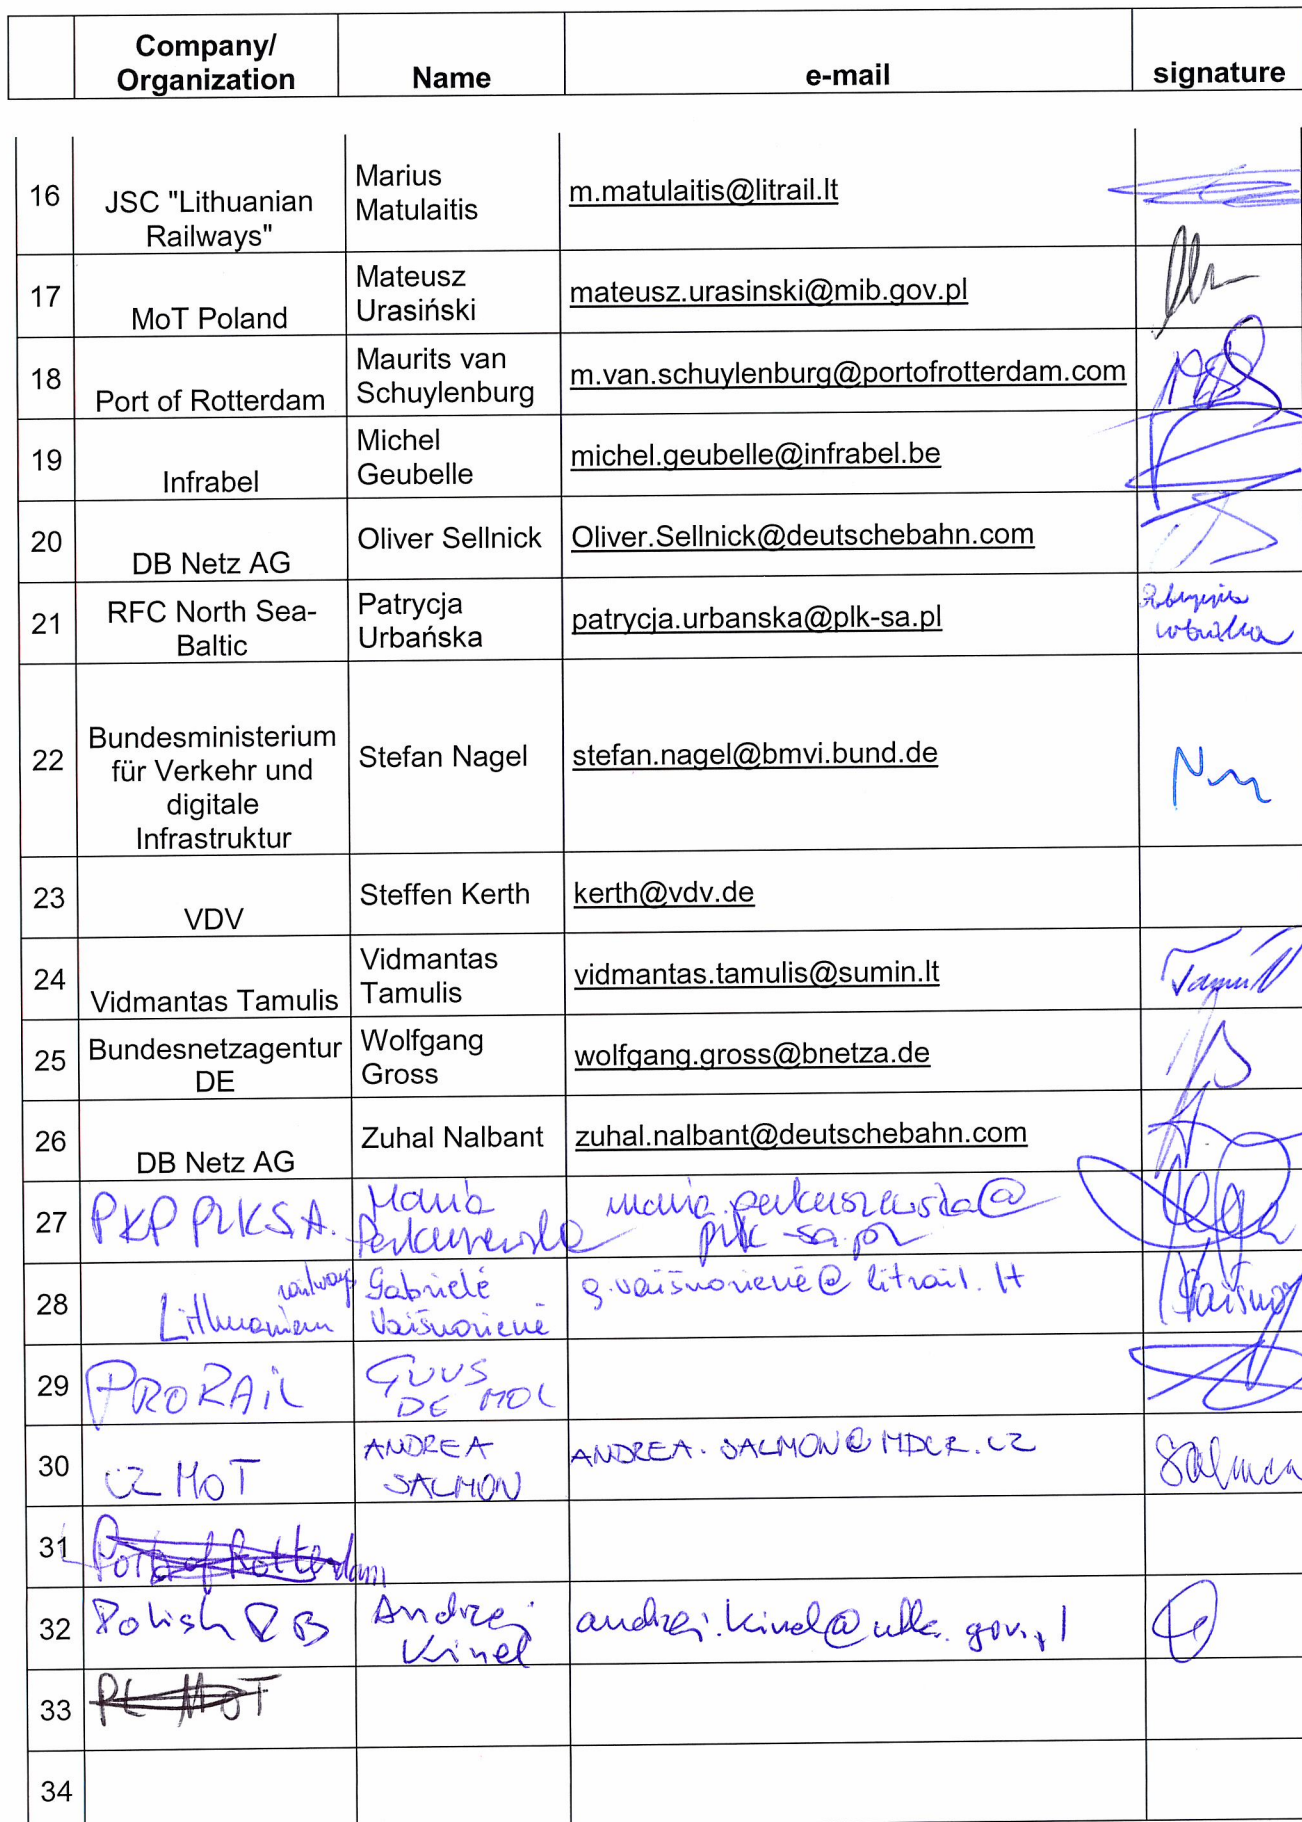 Company/
Organization
Name
e-mail
signature
16
JSC "Lithuanian
Railways"
Marius
Matulaitis
m.matulaitis@litrail.lt
17
MoT Poland
Mateusz
Urasiński
mateusz.urasinski@mib.gov.pl
18
Port of Rotterdam
Maurits van
Schuylenburg
m.van.schuylenburg@portofrotterdam.com
19
Infrabel
Michel
Geubelle
michel.geubelle@infrabel.be
20
DB Netz AG
Oliver Sellnick
Oliver.Sellnick@deutschebahn.com
21
RFC North Sea-
Baltic
Patrycja
Urbańska
patrycja.urbanska@plk-sa.pl
22
Bundesministerium
für Verkehr und
digitale
Infrastruktur
Stefan Nagel
stefan.nagel@bmvi.bund.de
23
VDV
Steffen Kerth
kerth@vdv.de
24
Vidmantas Tamulis
Vidmantas
Tamulis
vidmantas.tamulis@sumin.lt
25
Bundesnetzagentur
DE
Wolfgang
Gross
wolfgang.gross@bnetza.de
26
DB Netz AG
Zuhal Nalbant
zuhal.nalbant@deutschebahn.com
27
PKP PLK S.A.
Maria
maria.perkuszewska@
plk-sa.pl
28
railways
Lithuanian
Gabrielė
Vaišnorienė
g.vaisnorienė@litrail.lt
29
PRORAIL
GUUS
DE MOL
30
CZ MOT
ANDREA
SALMON
ANDREA.SALMON@MDCR.CZ
Salmon
31
Port of Rotterdam
32
Polish RB
Andrzej
Kinel
andrzej.kinel@utk.gov.pl
33
PL MOT
34